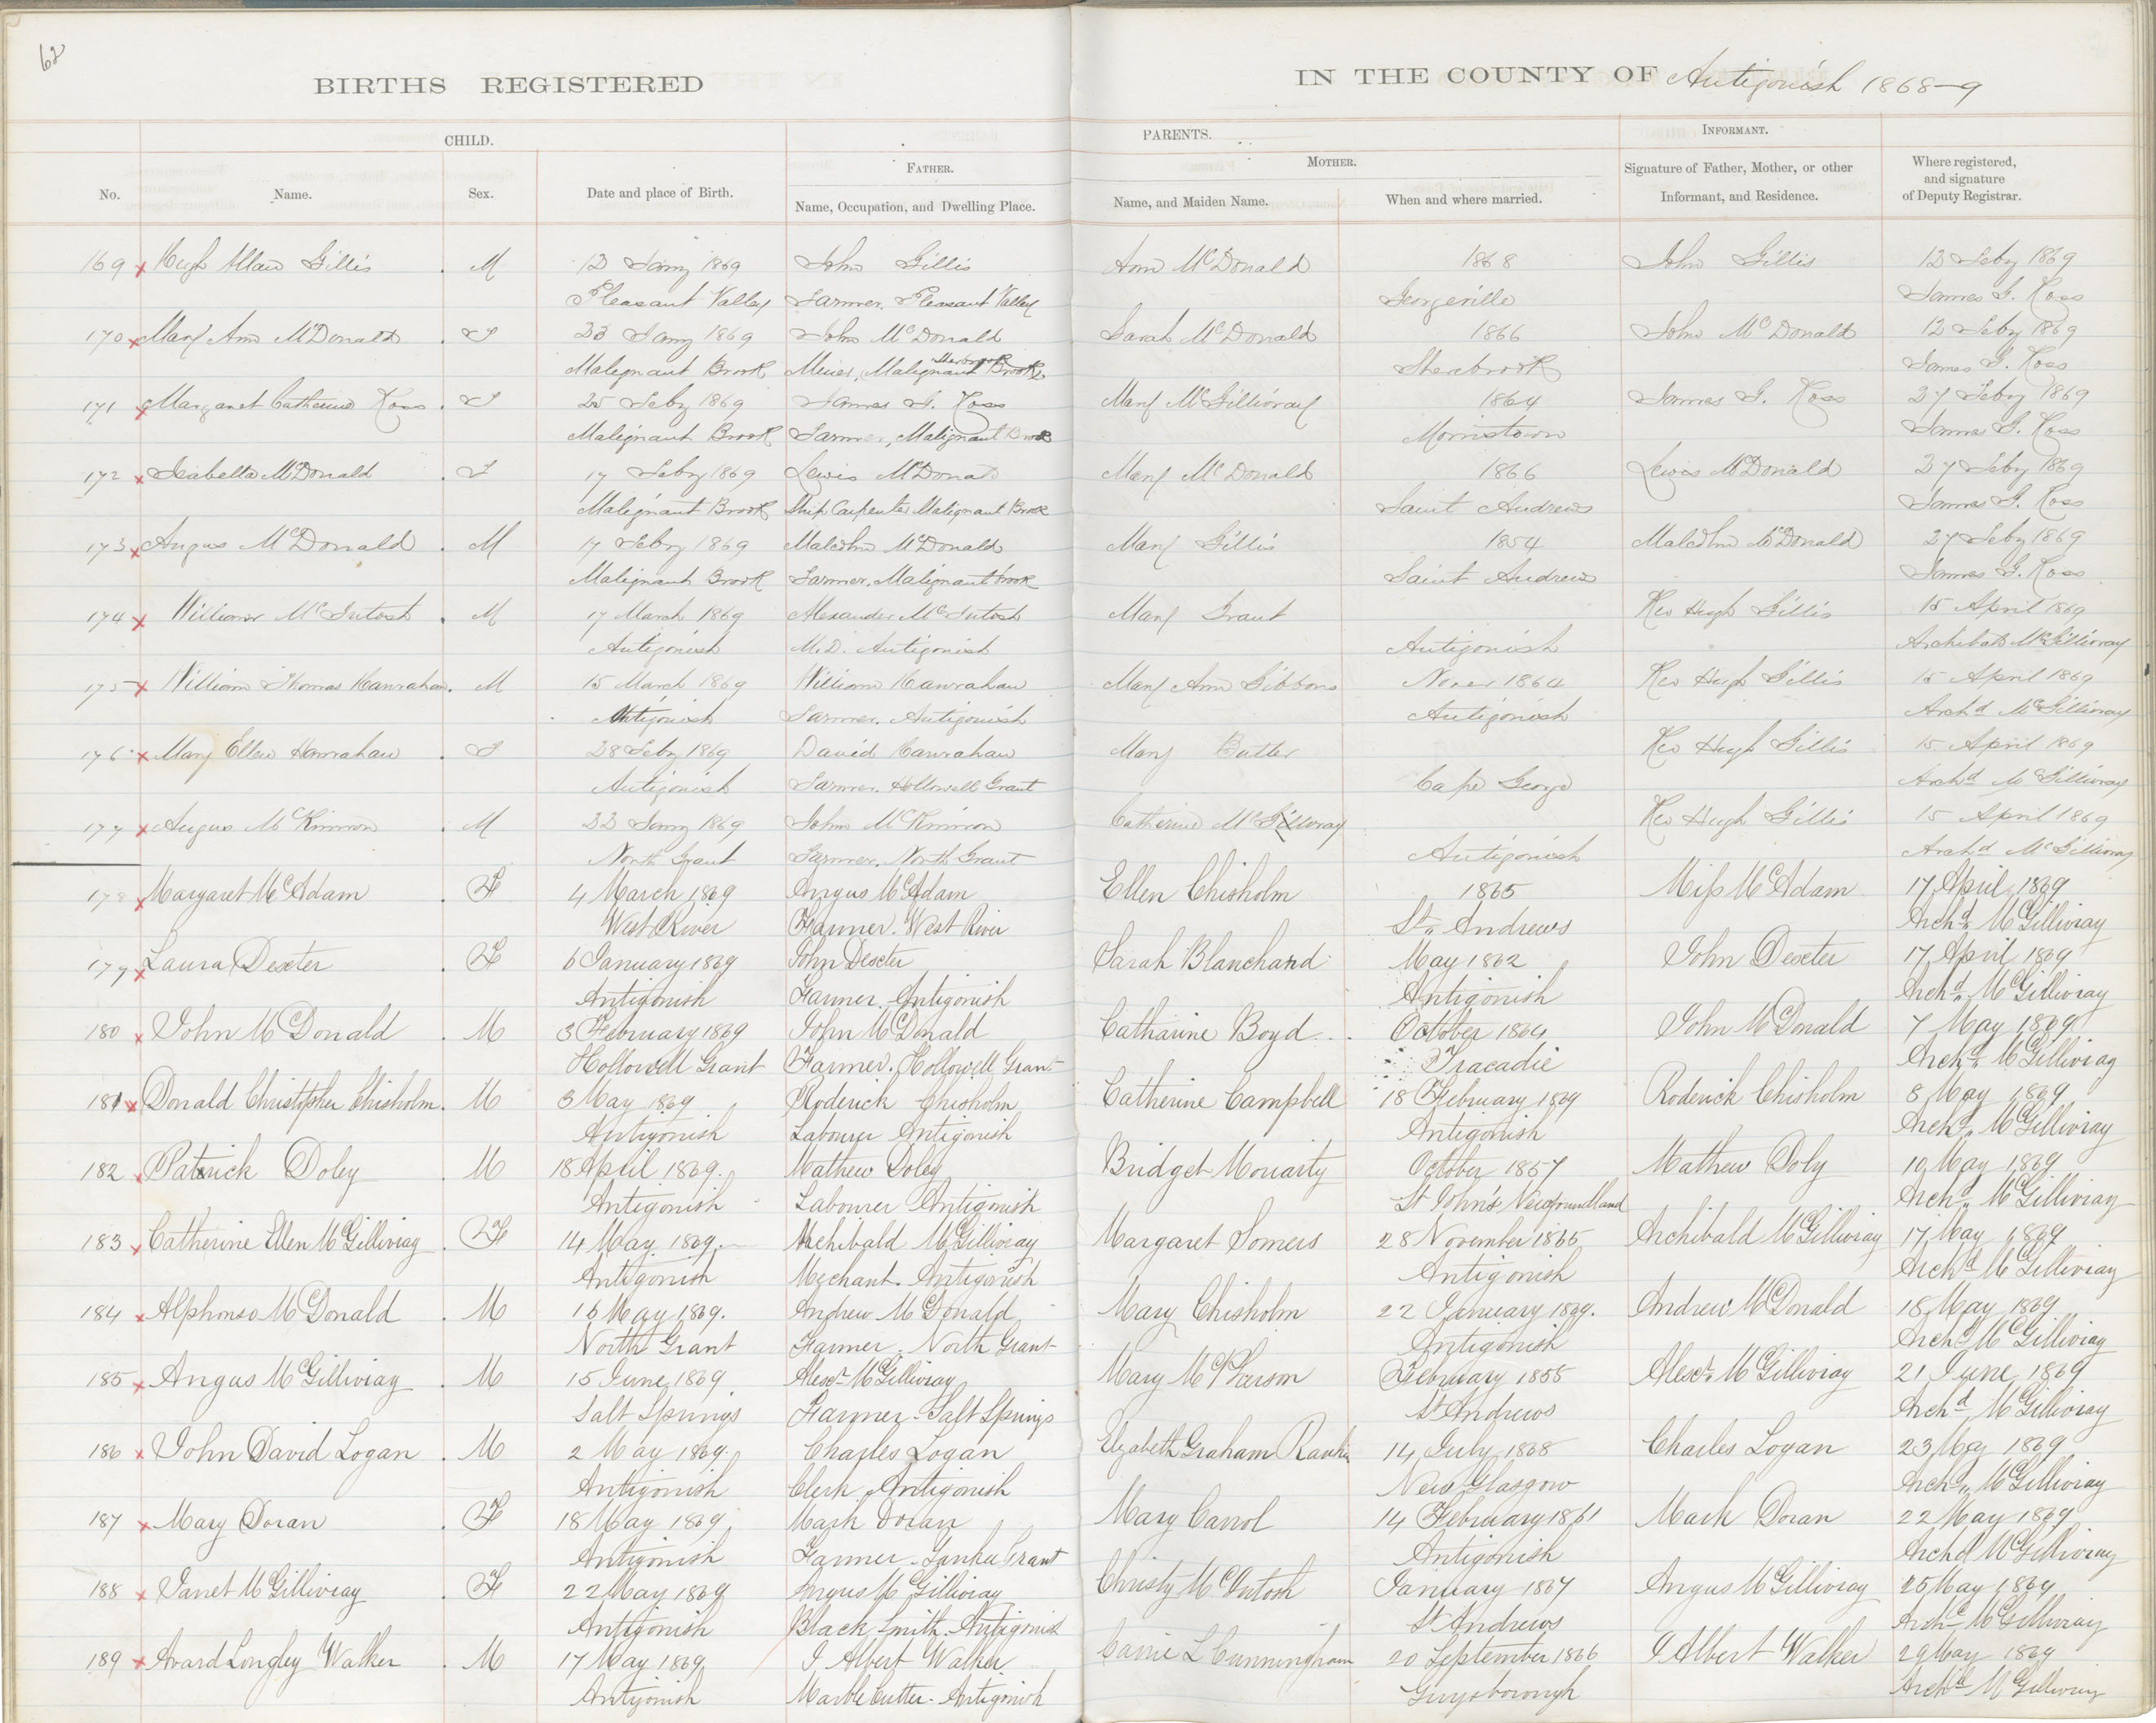 62
BIRTHS REGISTERED
IN THE COUNTY OF Antigonish 1868-9
CHILD.
PARENTS.
INFORMANT.
FATHER.
MOTHER.
No. Name. Sex. Date and place of Birth. Name, Occupation, and Dwelling Place. Name, and Maiden Name. When and where married. Signature of Father, Mother, or other Informant, and Residence. Where registered, and signature of Deputy Registrar.
169 x Hugh Allan Gillis M 12 Jany 1869 John Gillis Ann McDonald 1868 John Gillis 12 Feby 1869
Pleasant Valley Farmer. Pleasant Valley Georgeville James G. Ross
170 x Mary Ann McDonald F 23 Jany 1869 John McDonald Sarah McDonald 1866 John McDonald 12 Feby 1869
Malignant Brook Miner, Malignant Brook Sherbrook Sherbrook James G. Ross
171 x Margaret Catherine Ross F 25 Feby 1869 James G. Ross Mary McGillivray 1864 James G. Ross 27 Feby 1869
Malignant Brook Farmer, Malignant Brook Morristown James G. Ross
172 x Isabella McDonald F 17 Feby 1869 Lewis McDonald Mary McDonald 1866 Lewis McDonald 27 Feby 1869
Malignant Brook Ship Carpenter Malignant Brook Saint Andrews James G. Ross
173 x Angus McDonald M 17 Feby 1869 Malcolm McDonald Mary Gillis 1854 Malcolm McDonald 27 Feby 1869
Malignant Brook Farmer, Malignant brook Saint Andrews James G. Ross
174 x William McIntosh M 17 March 1869 Alexander McIntosh Mary Grant Rev Hugh Gillis 15 April 1869
Antigonish M.D. Antigonish Antigonish Archibald McGillivray
175 x William Thomas Hanrahan M 15 March 1869 William Hanrahan Mary Ann Gibbons Nover 1864 Rev Hugh Gillis 15 April 1869
Antigonish Farmer. Antigonish Antigonish Archd McGillivray
176 x Mary Ellen Hanrahan F 28 Feby 1869 David Hanrahan Mary Butler Rev Hugh Gillis 15 April 1869
Antigonish Farmer. Hollowell Grant Cape George Archd McGillivray
177 x Angus McKinnon M 22 Jany 1869 John McKinnon Catherine McGillvray Rev Hugh Gillis 15 April 1869
North Grant Farmer. North Grant Antigonish Archd McGillivray
178 x Margaret McAdam F 4 March 1869 Angus McAdam Ellen Chisholm 1865 Miss McAdam 17 April 1869
West River Farmer. West River St. Andrews Archd McGillivray
179 x Laura Dexter F 6 January 1869 John Dexter Sarah Blanchard May 1862 John Dexter 17 April 1869
Antigonish Farmer. Antigonish Antigonish Archd McGillivray
180 x John McDonald M 3 February 1869 John McDonald Catharine Boyd October 1864 John McDonald 7 May 1869
Hollowell Grant Farmer. Hollowell Grant Tracadie Archd McGillivray
181 x Donald Christopher Chisholm M 3 May 1869 Roderick Chisholm Catherine Campbell 18 February 1869 Roderick Chisholm 8 May 1869
Antigonish Labourer Antigonish Antigonish Archd McGillivray
182 x Patrick Doley M 18 April 1869. Mathew Doley Bridget Moriarty October 1857 Mathew Doly 10 May 1869
Antigonish Labourer Antigonish St John's Newfoundland Archd McGillivray
183 x Catherine Ellen McGillivray F 14 May 1869. Archibald McGillivray Margaret Somers 28 November 1865 Archibald McGillivray 17 May 1869
Antigonish Mechant. Antigonish Antigonish Archd McGillivray
184 x Alphonso McDonald M 16 May 1869. Andrew McDonald Mary Chisholm 22 January 1869. Andrew McDonald 18 May 1869
North Grant Farmer. North Grant Antigonish Archd McGillivray
185 x Angus McGillivray M 15 June 1869 Alexr McGillivray Mary McPherson February 1855 Alexr McGillivray 21 June 1869
Salt Springs Farmer. Salt Springs St Andrews Archd McGillivray
186 x John David Logan M 2 May 1869 Charles Logan Elizabeth Graham Rankin 14 July 1868 Charles Logan 23 May 1869
Antigonish Clerk Antigonish New Glasgow Archd McGillivray
187 x Mary Doran F 18 May 1869 Mark Doran Mary Carrol 14 February 1861 Mark Doran 22 May 1869
Antigonish Farmer. Yankee Grant Antigonish Archd McGillivray
188 x Janet McGillivray F 22 May 1869 Angus McGillivray Christy McIntosh January 1867 Angus McGillivray 25 May 1869
Antigonish Black Smith. Antigonish St Andrews Archd McGillivray
189 x Avard Longley Walker M 17 May 1869 J Albert Walker Carrie L Cunningham 20 September 1866 J Albert Walker 29 May 1869
Antigonish Marble Cutter. Antigonish Guysborough Archd McGillivray